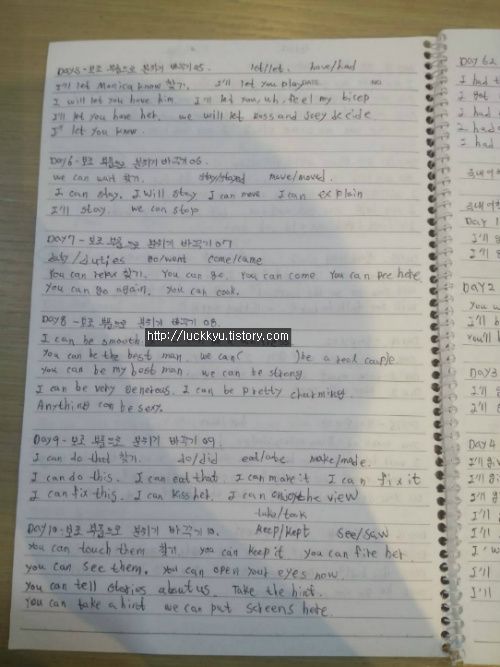 DAY5 - 보조 부품으로 분위기 바꾸기 05. let/let. have/had
I'll let Monica know 찾기. I'll let you play DATE NO
I will let you have him I'll let you, uh, feel my bicep
I'll let you have her. we will let Ross and Joey decide
I'll let you know.
Day6 - 보조 부품으로 분위기 바꾸기 06.
we can wait 찾기. stay/stayed move/moved.
I can stay. I will stay I can move I can explain
I'll stay we can stop
DAY7 - 보조 부품으로 분위기 바꾸기 07
duty/duties go/went come/came
You can relax 찾기. You can go. You can come You can pee here
You can go again. You can cook.
DAY8 - 보조 부품으로 분위기 바꾸기 08.
I can be smooth
http://luckkyu.tistory.com
You can be the best man. we can( )be a real couple
You can be my best man. we can be strong
I can be very generous. I can be pretty charming.
Anything can be sexy.
DAY9 - 보조 부품으로 분위기 바꾸기 09.
I can do that 찾기. do/did eat/ate make/made.
I can do this. I can eat that. I can make it I can fix it
I can fix this. I can kiss her. I can enjoy the view
take/took
DAY10 - 보조 부품으로 분위기 바꾸기 10. keep/kept see/saw
You can touch them 찾기. You can keep it You can fire her.
You can see them. You can open your eyes now.
You can tell stories about us. Take the hint.
You can take a hint we can put screens here.
DAY 62
I had t
I got
I had
I had
I had
DAY 1
I'll
I'll
DAY2
You w
I'll h
You'll h
DAY3
I'll
I'll
DAY4
I'll gi
I'll gi
I'll
I'll
I'll
I'w
I'll
I'll